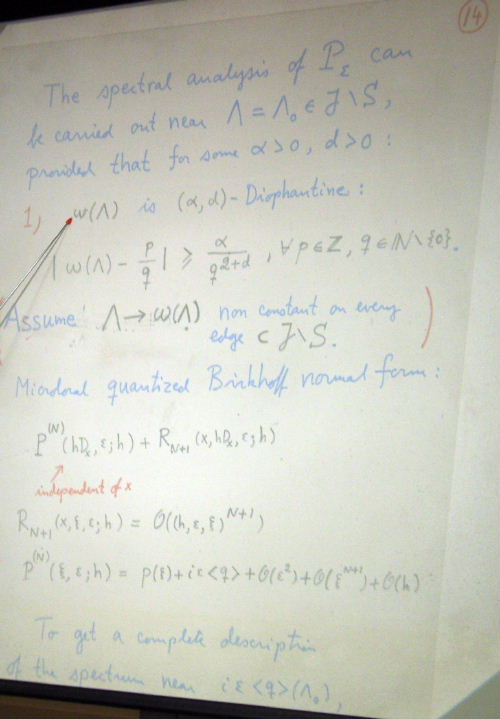 14
The spectral analysis of P_ε can
be carried out near Λ = Λ₀ ∈ J \ S,
provided that for some α>0, d>0 :
1) ω(Λ) is (α, d) - Diophantine :
| ω(Λ) - p/q | ≥ α/q^{2+d} , ∀ p ∈ ℤ, q ∈ ℕ \ {0}.
Assume: Λ → ω(Λ) non constant on every
edge ⊂ J \ S. )
Microlocal quantized Birkhoff normal form :
P^{(N)}(hD_x, ε; h) + R_{N+1}(x, hD_x, ε; h)
independent of x
R_{N+1}(x, ξ, ε; h) = O((h, ε, ξ)^{N+1})
P^{(N)}(ξ, ε; h) = p(ξ) + iε<q> + O(ε²) + O(ξ^{N+1}) + O(h)
To get a complete description
of the spectrum near iε<q>(Λ₀),